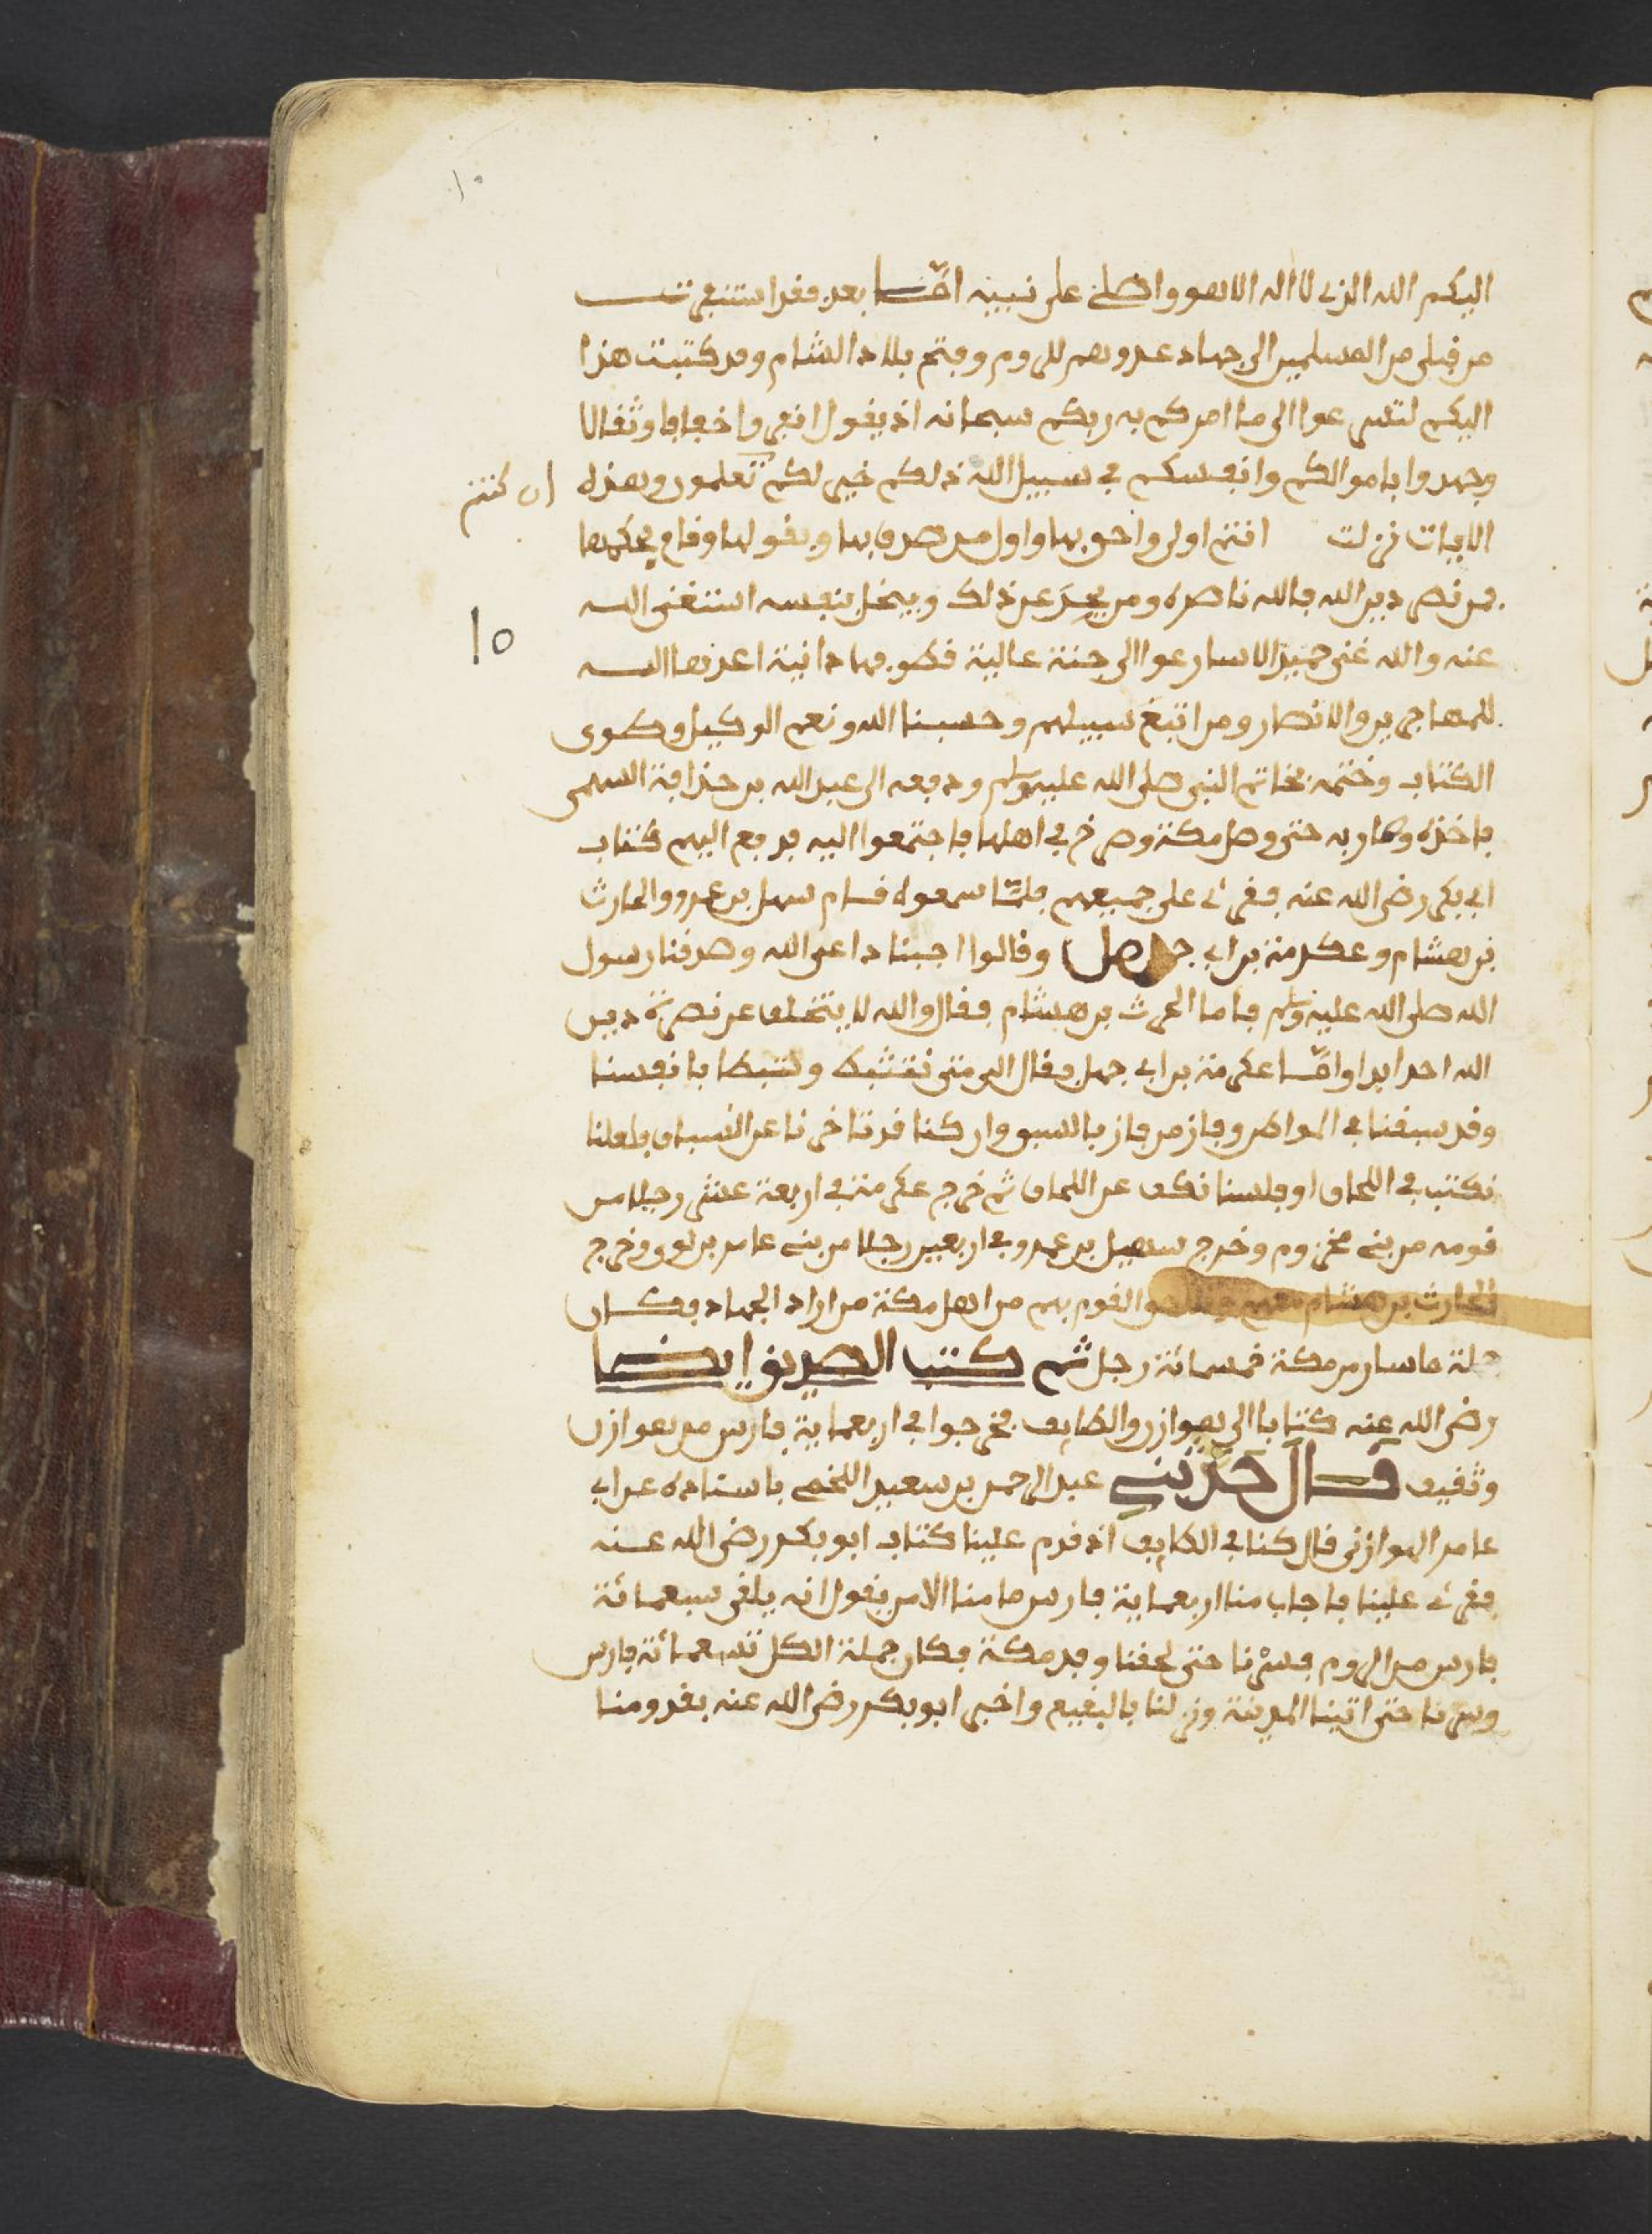 ١٠
اليكم الله الذي لا اله الا هو واصلي على نبيه امّـا بعد فقد استنفرت
من قبلي من المسلمين الى جهاد عدوهم للروم وفتح بلاد الشام وقد كتبت هذا
اليكم لتسرعوا الى ما امركم به ربكم سبحانه اذ يقول انفروا خفافا وثقالا
وجهدوا باموالكم وانفسكم في سبيل الله ذلكم خير لكم تعلمون وهذه
ان كنتم
الايات نزلت انتم اولى واحق بها واول من صدق بها ويقولها وقام بحكمها
من نصر دين الله فالله ناصره ومن عن ذلك ويبخل بنفسه استغنى الله
10
عنه والله غني حميد الا سارعوا الى جنة عالية قطوفها دانية اعدها الله
للمهاجرين والانصار ومن اتبع سبيلهم وحسبنا الله ونعم الوكيل وطوى
الكتاب وختمه بخاتم النبي صلى الله عليه وسلم ودفعه الى عبد الله بن حذافة السهمي
فاخذه وسار به حتى وصل مكة وصرخ في اهلها فاجتمعوا اليه فدفع اليهم كتاب
ابي بكر رضي الله عنه فقرئ على جميعهم فلمّا سمعوه قام سهل بن عمرو والحارث
بن هشام وعكرمة بن ابي جهل وقالوا اجبنا داعي الله وصدقنا رسول
الله صلى الله عليه وسلم فاما الحرث بن هشام فقال والله لا يتخلف عن نصرة دين
الله احد ابدا وامّا عكرمة بن ابي جهل فقال الى متى بانفسنا
وقد سبقنا في المواطن وفاز من فاز بالسبق وان كنا قد تاخرنا عن السباق فلعلنا
نكتب في اللحاق او فلسنا نكف عن اللحاق ثم خرج عكرمة في اربعة عشر رجلا من
قومه من بني مخزوم وخرج سهيل بن عمرو في اربعين رجلا من بني عامر بن لوي وخرج
الحارث بن هشام معهم القوم بهم من اهل مكة من اراد الجهاد فكان
جملة ما سار من مكة خمسمائة رجل ثم كتب الصديق ايضا
رضي الله عنه كتابا الى هوازن والطايف فخرجوا في اربعماية فارس من هوازن
وثقيف قال حدثني عبد الرحمن بن سعيد اللخمي باسناده عن ابي
عامر الهوازني قال كنا في الطايف اذ قدم علينا كتاب ابو بكر رضي الله عنه
فقرئ علينا فاجاب منا اربعماية فارس ما منا الا من يقول انه يلقى سبعمائة
فارس من الروم فسرنا حتى لحقنا وفد مكة فكان جملة الكل تسعمائة فارس
وسرنا حتى اتينا المدينة ونزلنا بالبقيع واخبر ابو بكر رضي الله عنه بقدومنا